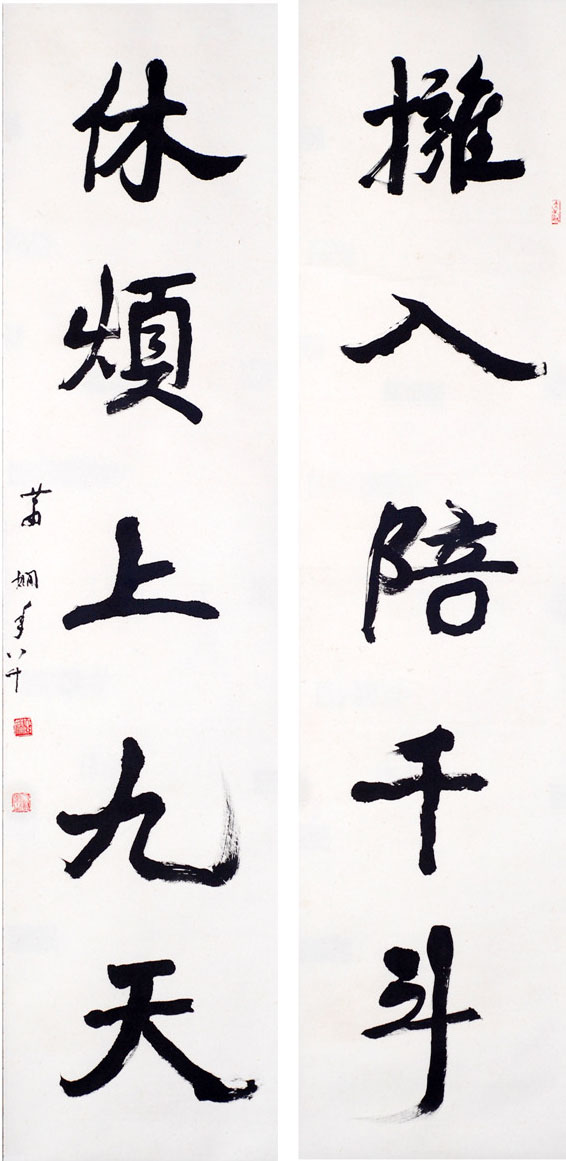 擁入陪千斗
休煩上九天
蕭嫻年八十